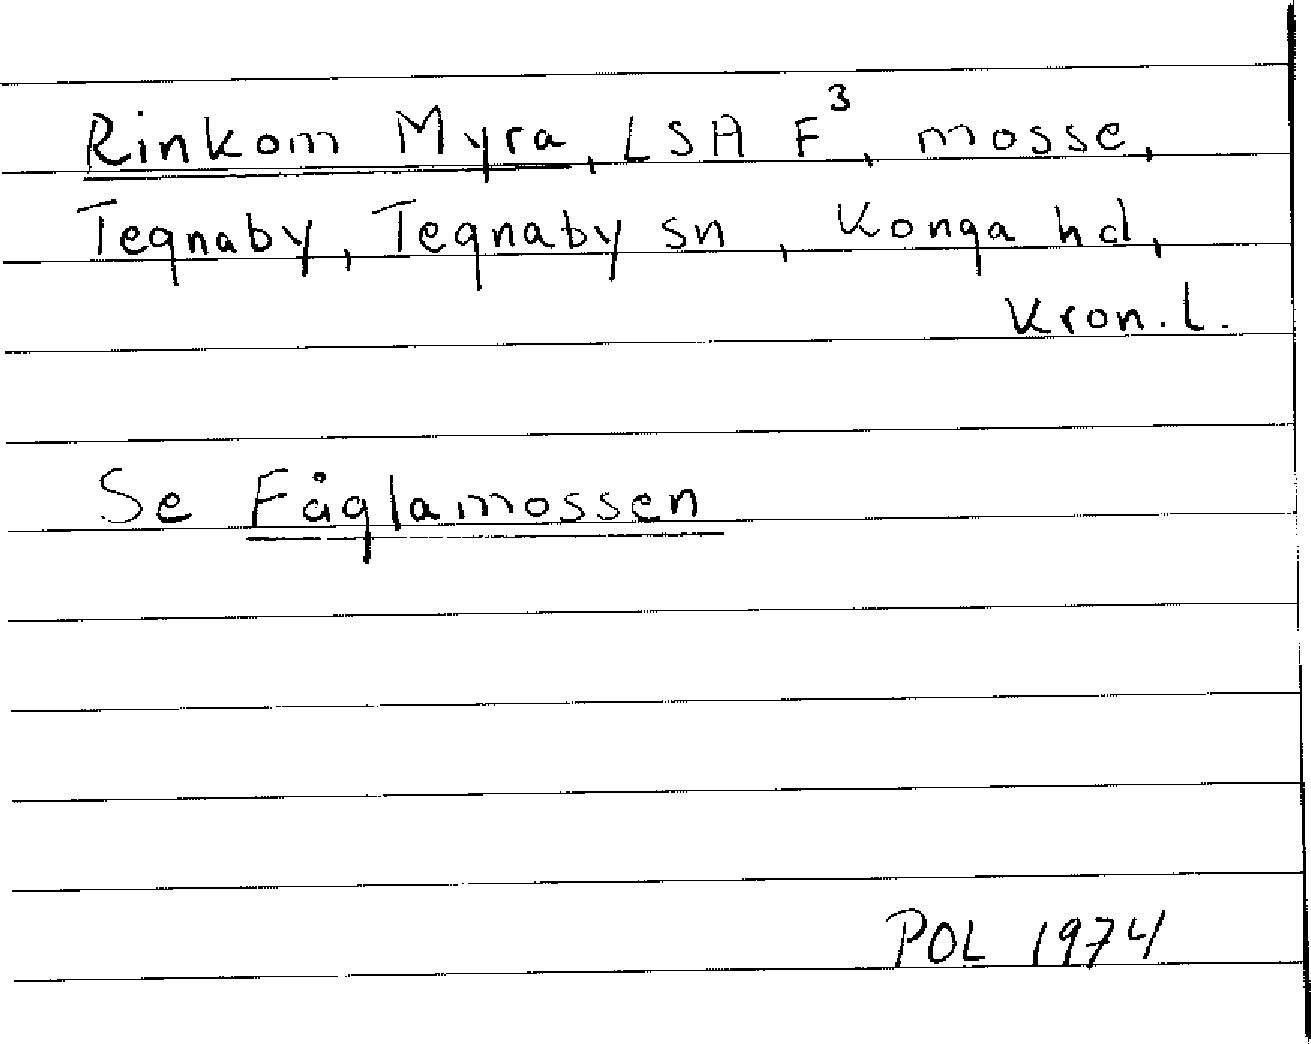 Rinkom Myra, LSA F³, mosse,
Tegnaby, Tegnaby sn, Konga hd,
Kron.l.
Se Fåglamossen
POL 1974